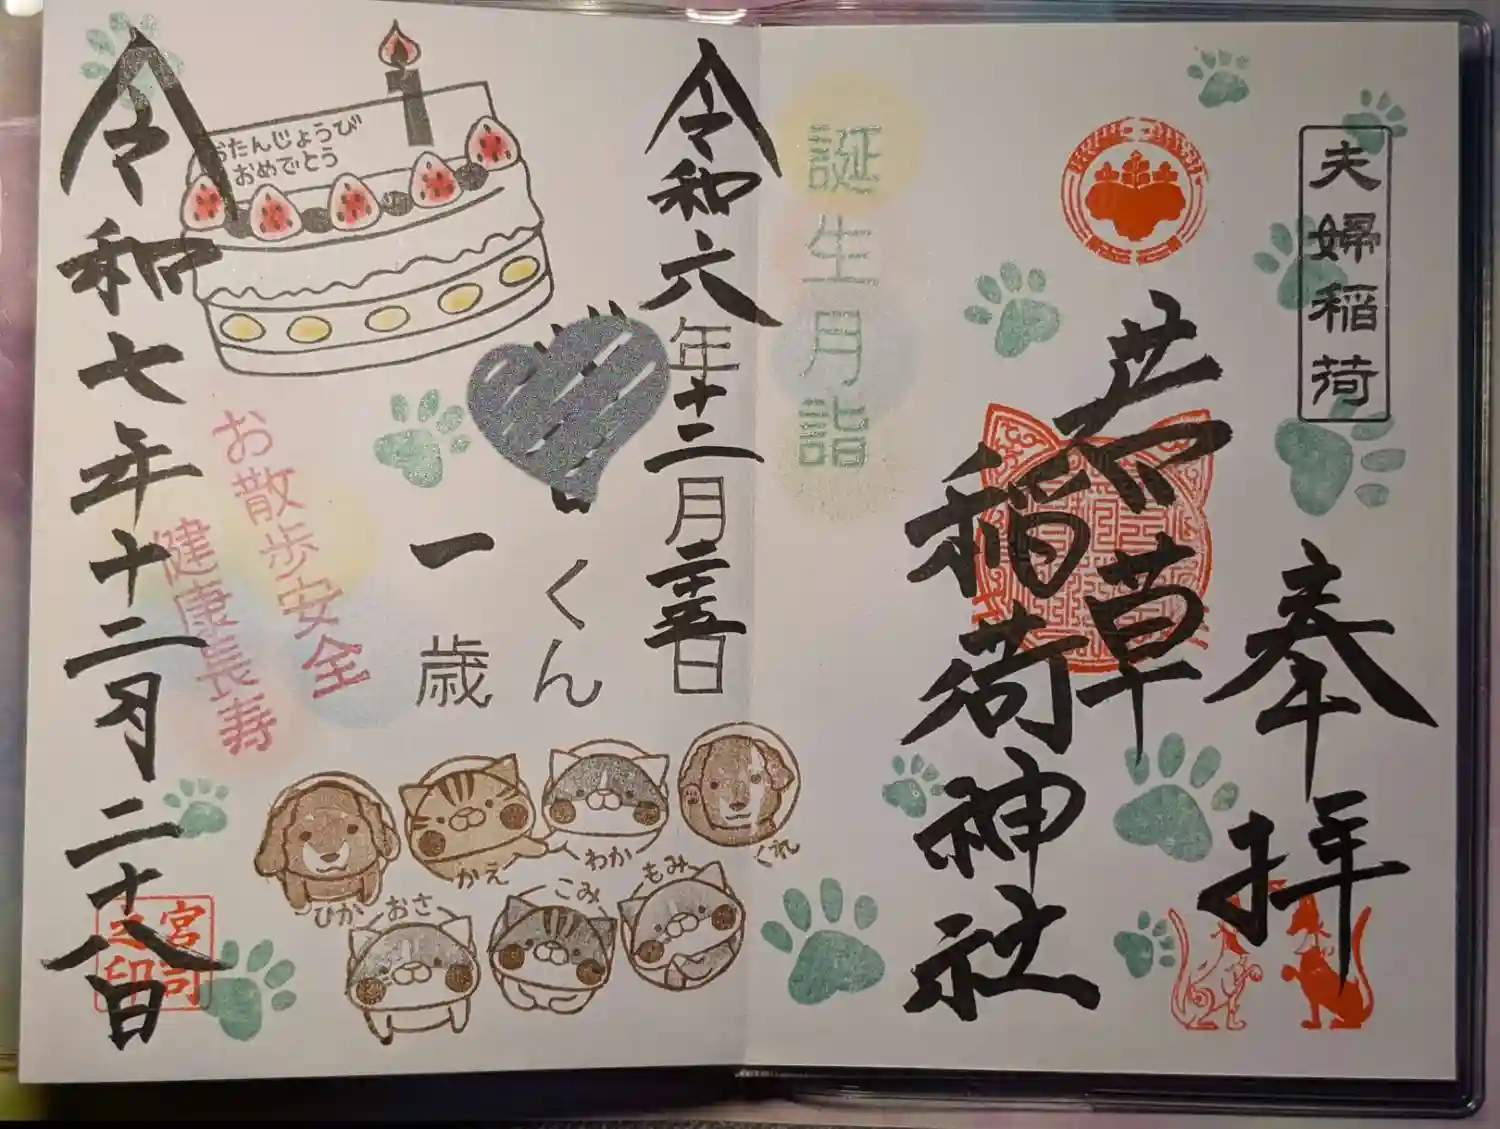 夫婦稲荷
奉拝
若草
稲荷神社
誕生月詣
令和六年十二月二十五日
くん
一歳
おたんじょうび
おめでとう
お散歩安全
健康長寿
令和七年十二月二十八日
宮司之印
ひか
かえ
わか
くれ
おさ
こみ
もみ